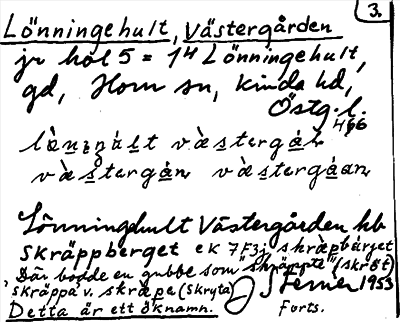 3.
Lönningehult, Västergården
jr hol 5 = 14 Lönningehult,
gd, Horn sn, Kinda hd,
Östg. l.
466
västergån västergåan
Lönninghult Västergården hb
skräppberget ek 7F3j skræpbärjet
Där bodde en gubbe som "skräppte" (skröt)
skräppa v. skræpa (skryta) Sterner 1953
Detta är ett öknamn. Forts.